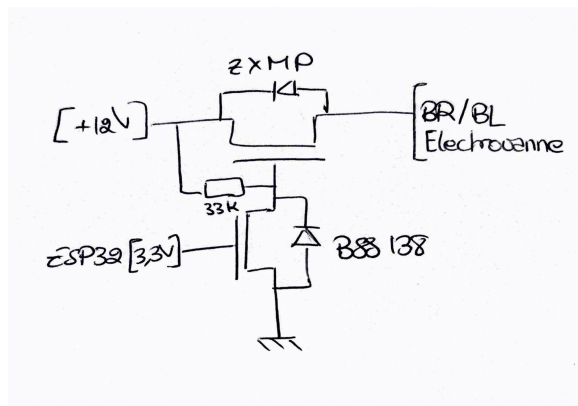 ZXMP
[+12V]
BR/BL
Electrovanne
33K
ESP32 [3,3V]
BSS 138